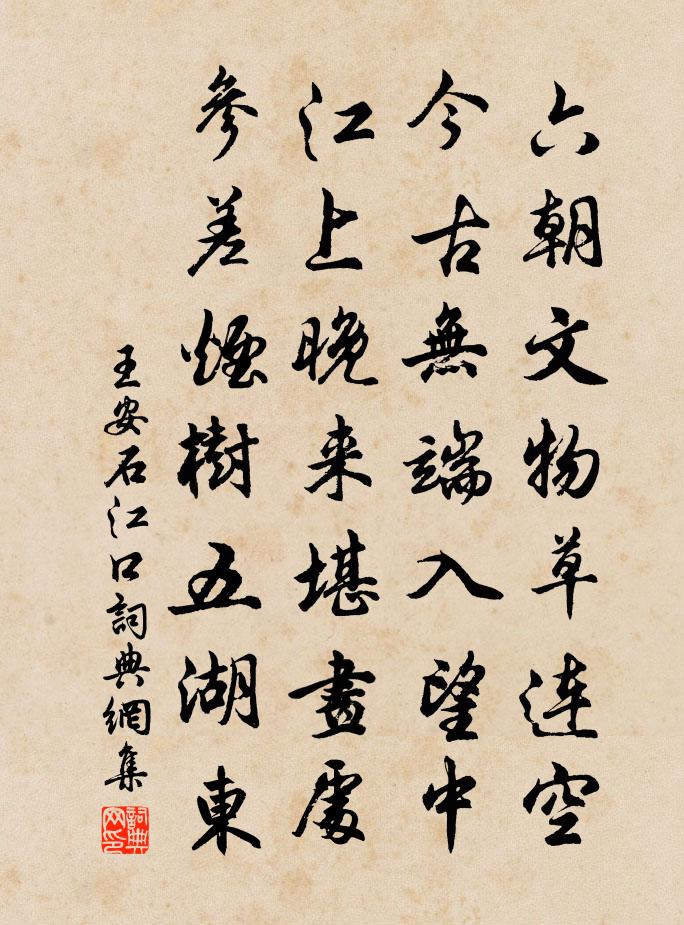 六朝文物草連空
今古無端入望中
江上晚来堪畫處
參差煙樹五湖東
王安石江口詞典網集
詞典网印